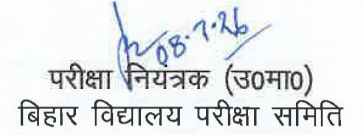 08.7.26
परीक्षा नियंत्रक (उ0मा0)
बिहार विद्यालय परीक्षा समिति